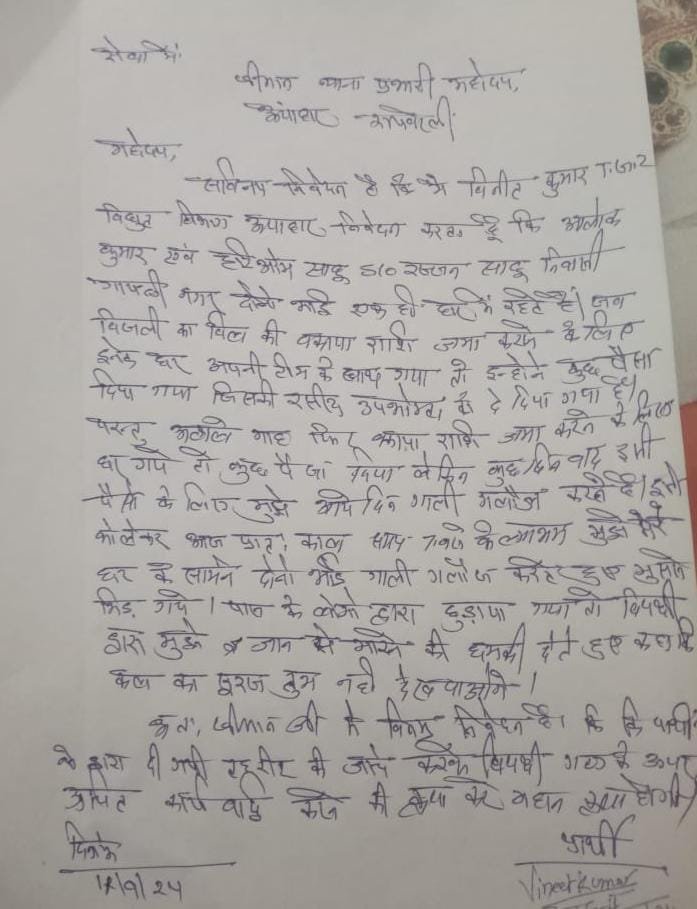 सेवा में,
श्रीमान थाना प्रभारी महोदय,
ऊंचाहार रायबरेली
महोदय,
सविनय निवेदन है कि मै विनीत कुमार T.G.2
विद्युत विभाग ऊंचाहार निवेदन करता हूँ कि आलोक
कुमार एवं हरिओम साहू S/o रज्जन साहू निवासी
नगर दोनो भाई एक ही घर में रहते है। जब
बिजली का बिल की बकाया राशि जमा करने के लिए
इनके घर अपनी टीम के साथ गया तो इन्होने कुछ पैसा
दिया गया जिसकी रसीद उपभोक्ता को दे दिया गया है।
परन्तु अगले माह फिर बकाया राशि जमा करने के लिए
घर गये तो कुछ पैसा दिया लेकिन कुछ दिन बाद इसी
पैसो के लिए मुझे आये दिन गाली गलौज करते है। इसी
को लेकर आज प्रात: काल समय 7 बजे के लगभग मुझे मेरे
घर के सामने दोनो भाई गाली गलौज करते हुए मुझसे
भिड़ गये। पास के लोगो द्वारा छुड़ाया गया तो विपक्षी
द्वारा मुझे जान से मारने की धमकी देते हुए कहा कि
कल का सूरज तुम नही देख पाओगे।
अत: श्रीमान जी से विनम्र निवेदन है। कि कि प्रार्थी
के द्वारा दी गयी तहरीर की जांच करके विपक्षी गण के ऊपर
उचित कार्यवाई करने की कृपा करे महान कृपा होगी।
दिनांक
प्रार्थी
12/9/24
Vineet Kumar